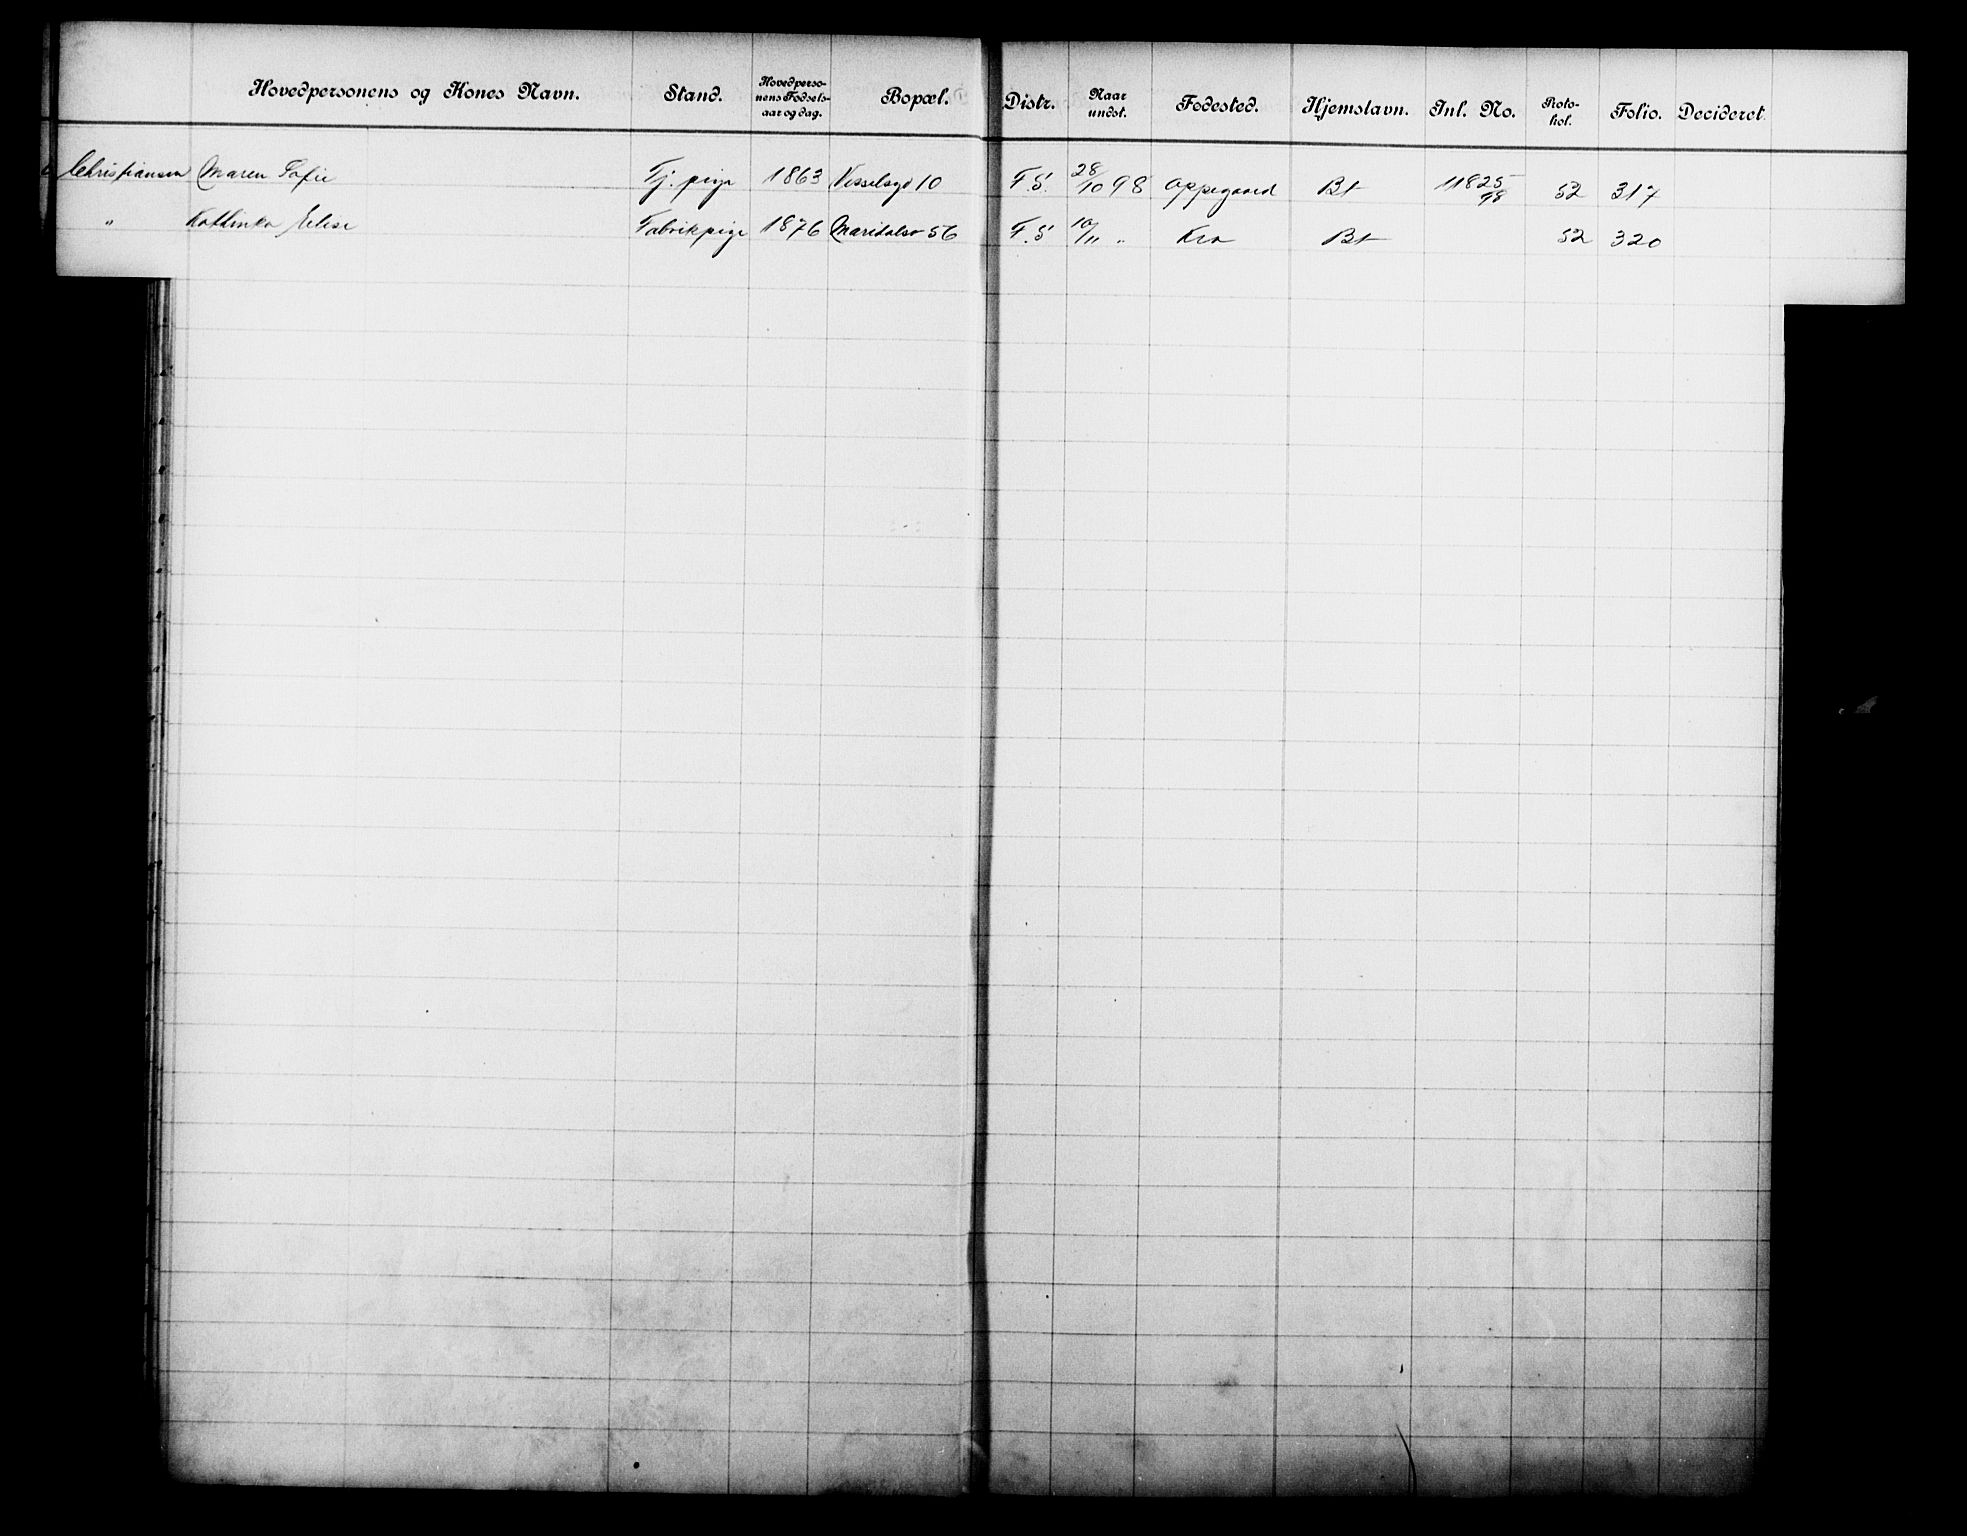 Hovedpersonens og Kones Navn. Stand. Hovedperso-nens Fødsels-aar og dag. Bopæl. Distr. Naar undst. Fødested. Hjemstavn. Inl. No. Proto-kol. Folio. Decideret.
Christiansen Maren Sofie Tj. pige 1863 Vesselsgd 10 F.S. 28/10 98 Oppegaard Bt 11825/98 52 317
" Kathinka Elise Fabrikpige 1876 Maridalsv 56 F.S 10/11 " Kra Bt 52 320